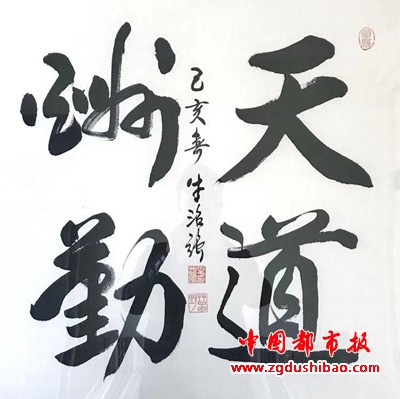 天道
酬勤
己亥春 牛治强
中国都市报
www.zgdushibao.com